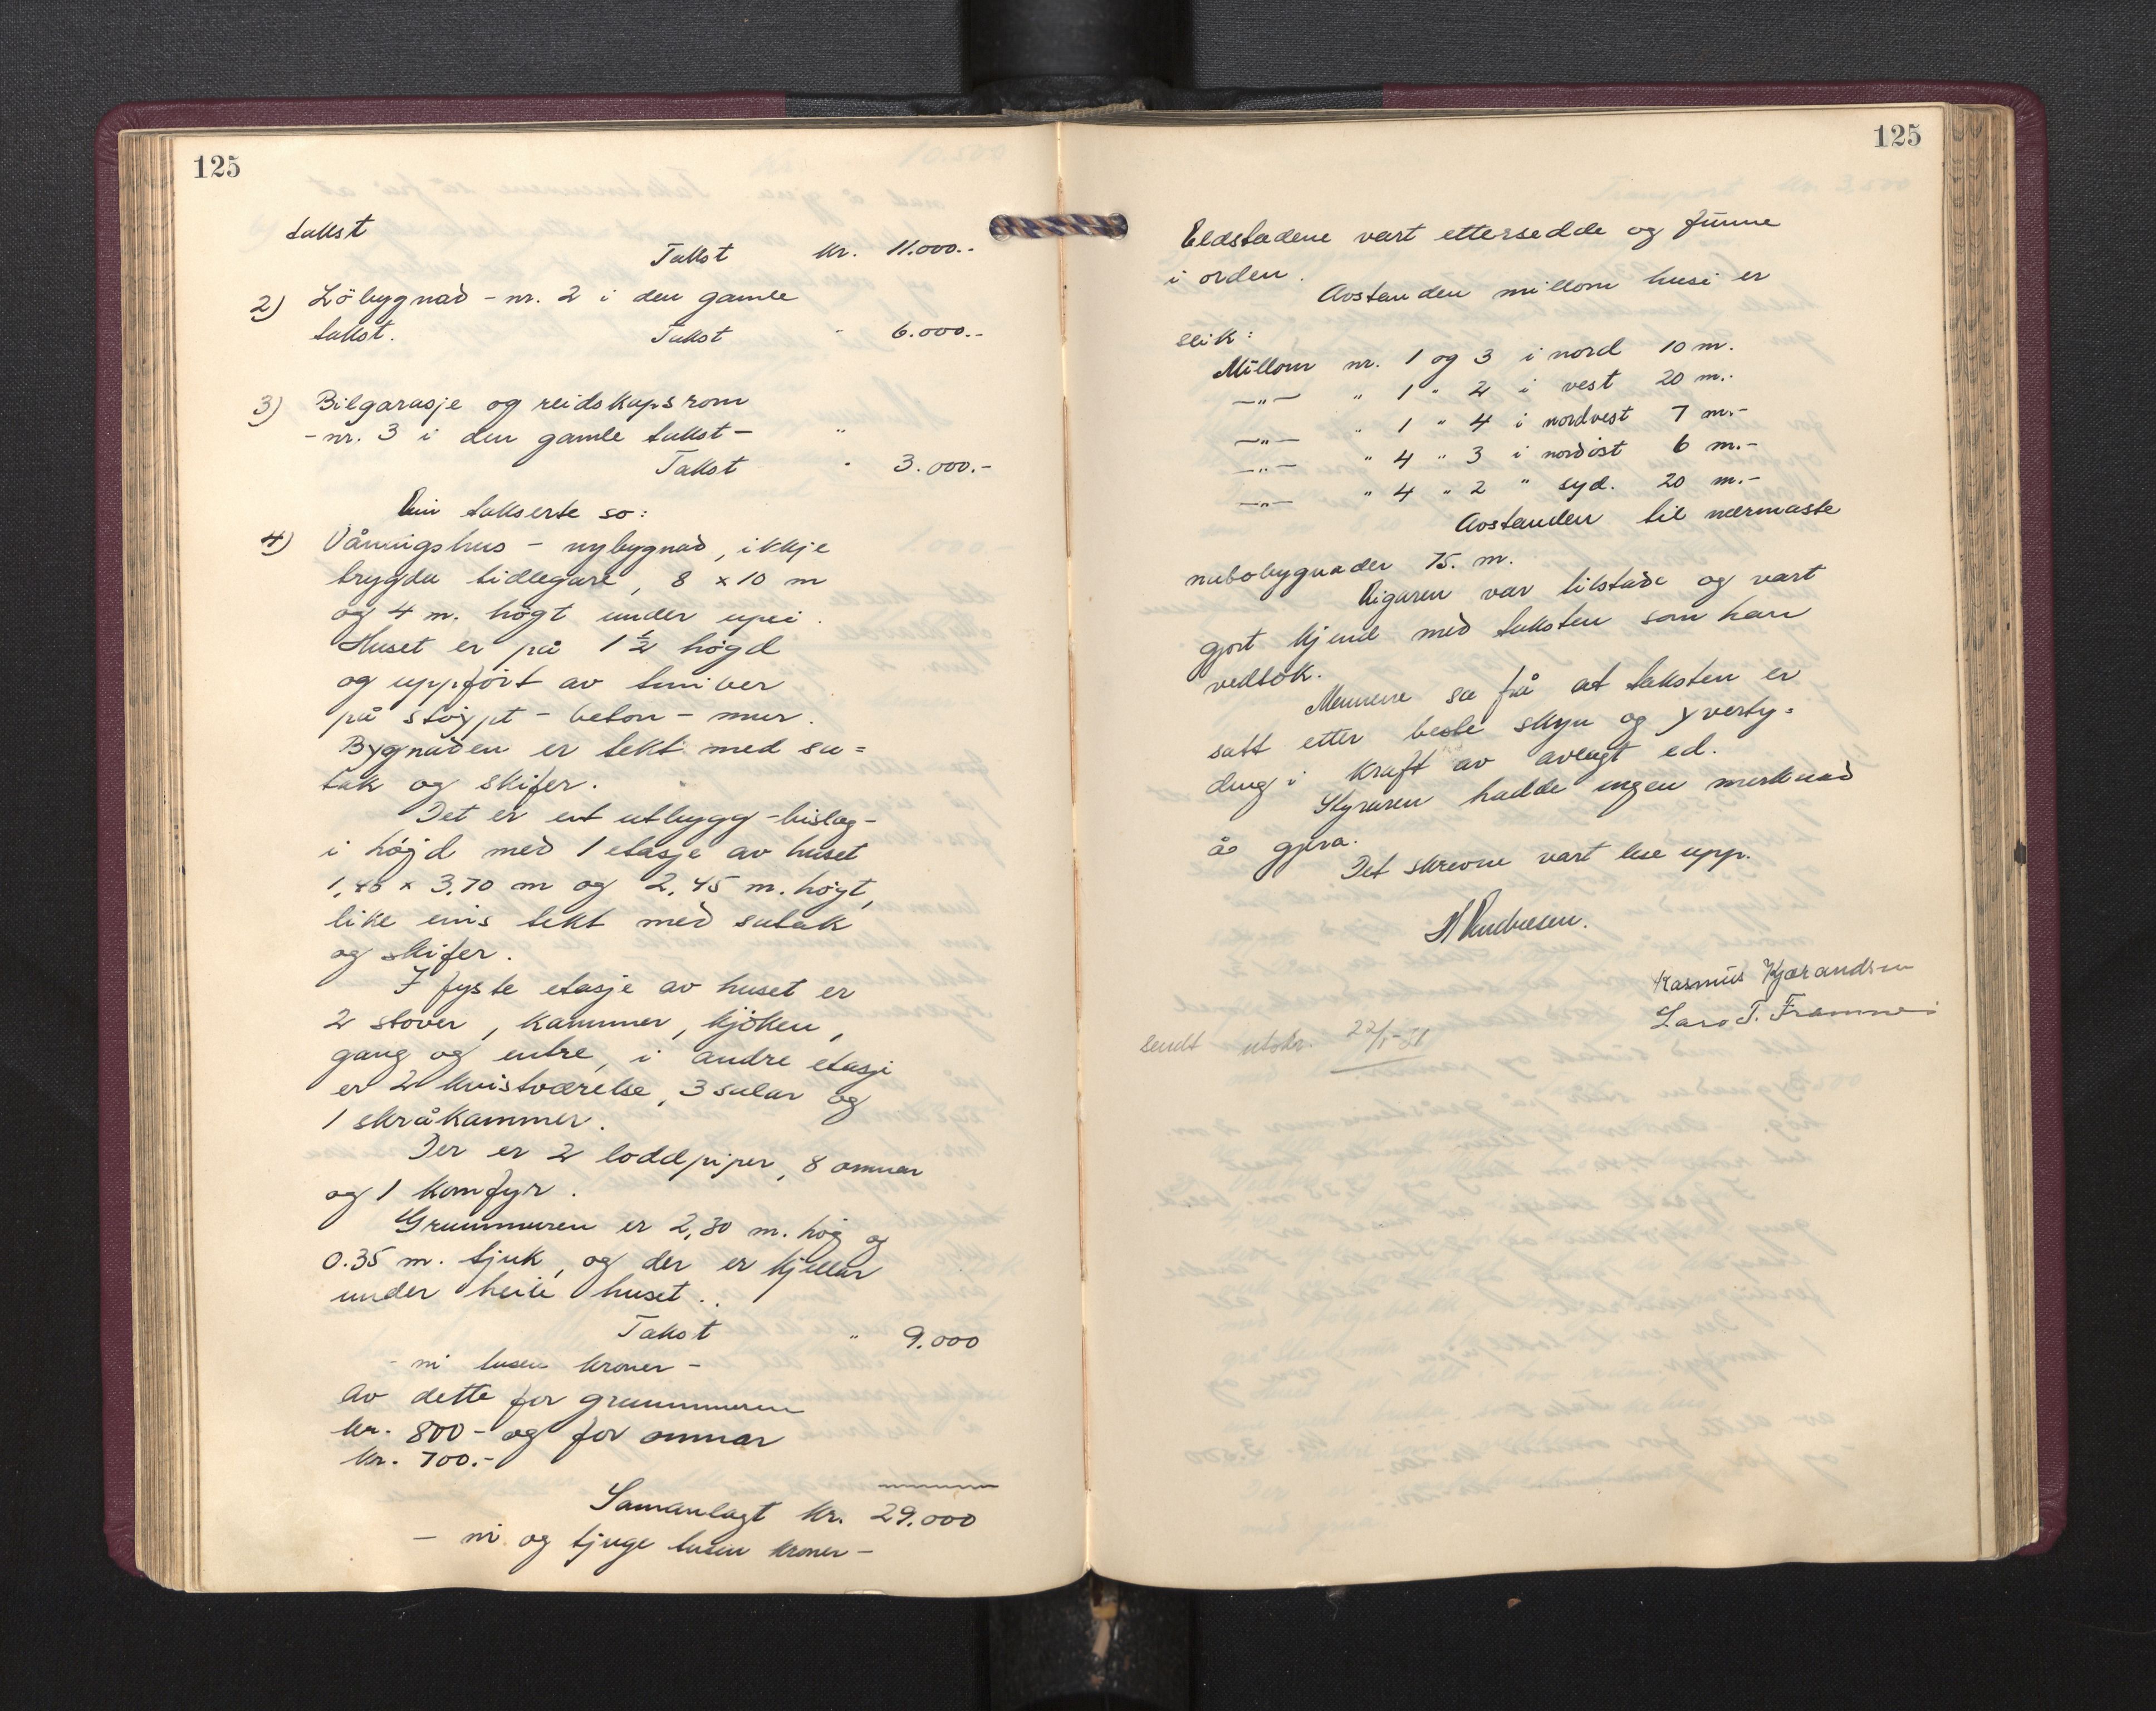 125
takst
Takst kr. 11.000.-
2) Löbygnad - nr. 2 i den gamle
takst. Takst " 6.000.-
3) Bilgarasje og reidskapsrom
- nr. 3 i den gamle takst - "
Takst " 3.000.-
Ein takserte so:
4) Våningshus - nybygnad, ikkje
trygda tidlegare, 8 x 10 m
og 4 m. högt under upsi.
Huset er på 1 ½ högd
og uppfört av timber
på stöypt - beton - mur.
Bygnaden er tekt med su=
tak og skifer.
Det er eit utbygg - bislag -
i högd med 1 etasje av huset
1,40 x 3.70 m og 2,45 m. högt,
like eins tekt med sutak
og skifer.
I fyste etasje av huset er
2 stover, kammer, kjöken,
gang og entre, i andre etasje
er 2 kvistværelse, 3 salar og
1 skråkammer.
Der er 2 loddpiper, 8 omnar
og 1 komfyr.
Grunnmuren er 2,30 m. hög og
0.35 m. tjuk, og der er kjellar
under heile huset.
Takst " 9.000
- ni tusen kroner -
Av dette for grunnmuren
kr. 800 - og for omnar
kr. 700.-
Samanlagt kr. 29.000
- ni og tjuge tusen kroner -
125
Eldstadene vart ettersedde og funne
i orden.
Avstanden millom husi er
slik:
Millom nr. 1 og 3 i nord 10 m.
-"- " 1 " 2 i vest 20 m.-
-"- " 1 " 4 i nordvest 7 m.-
-"- " 4 " 3 i nordöst 6 m.-
-"- " 4 " 2 " syd. 20 m.-
Avstanden til nærmaste
nabobygnader 75. m.
Eigaren var tilstade og vart
gjort kjend med taksten som han
vedtok.
Mennene sa frå at taksten er
satt etter beste skyn og yverty=
ding i kraft av avlagt ed.
Styraren hadde ingen merknad
å gjera.
Det skrevne vart lese upp.
H Andresen.
Rasmus Kjærandsen
Lars T. Framnes
Sendt utskr. 22/1-51